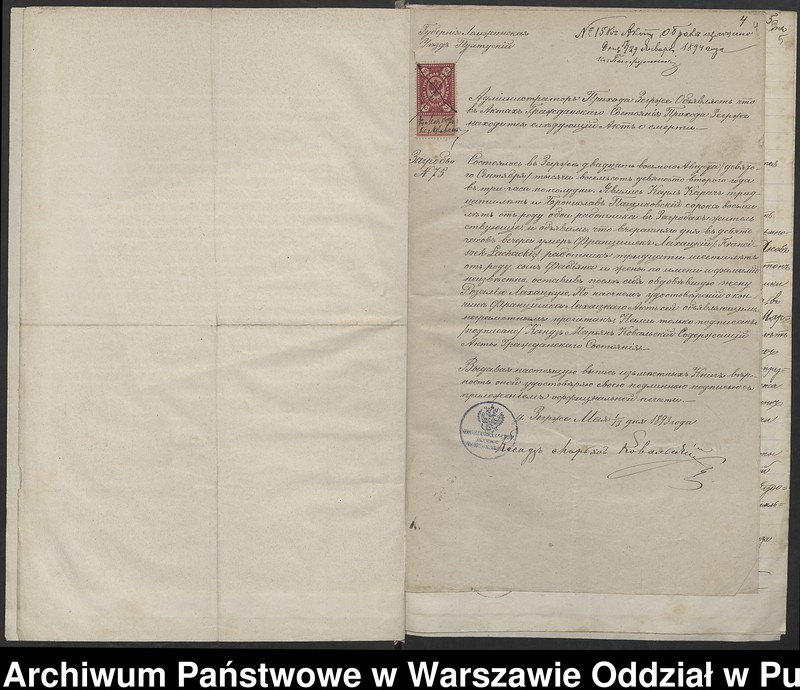 4
5
Губернія Ломжинская
Уѣздъ Пултускій
№ 15 Къ Акту о бракѣ
Января 1894 года
Администраторъ Прихода Зегрже Объявляетъ что
въ Актахъ Гражданскаго Состоянія Прихода Зегрже
находится слѣдующій Актъ о смерти.
№ 75
Состоялось въ Зегрже двадцать восьмого Августа / девято-
го Сентября / тысяча восемьсотъ девяносто второго года
въ три часа по полудни. Явились Карлъ Карачъ трид-
цати лѣтъ и Брониславъ Пащиковскій сорока восьми
лѣтъ отъ роду оба работники въ Загробахъ житель
ствующіе и объявили, что вчерашняго дня въ девять
часовъ вечера умеръ Францишекъ Лахацкій / Franci-
szek Lachacki / работникъ тридцати шести лѣтъ
отъ роду сынъ Фабіяна и жены по имени и фамиліи
неизвѣстно, оставивъ послѣ себя овдовѣвшую жену
Розалію Лахацкую. По наочномъ удостовѣреніи о кон-
чинѣ Францишка Лахацкаго Актъ сей объявляющимъ
неграмотнымъ прочитанъ Нами только подписанъ
/подписано/ Ксендзъ Марьянъ Ковальскій Содержащій
Акты Гражданскаго Состоянія.
Выдавая настоящую выпись изъ меточныхъ Книгъ вѣр-
ность оной удостовѣряю своею подлинною подписью съ
приложеніемъ оффиціальной печати.
д. Зегрже Мая 1/13 дня 1893 года
Ксендзъ Марьянъ Ковальскій
Archiwum Państwowe w Warszawie Oddział w Pu